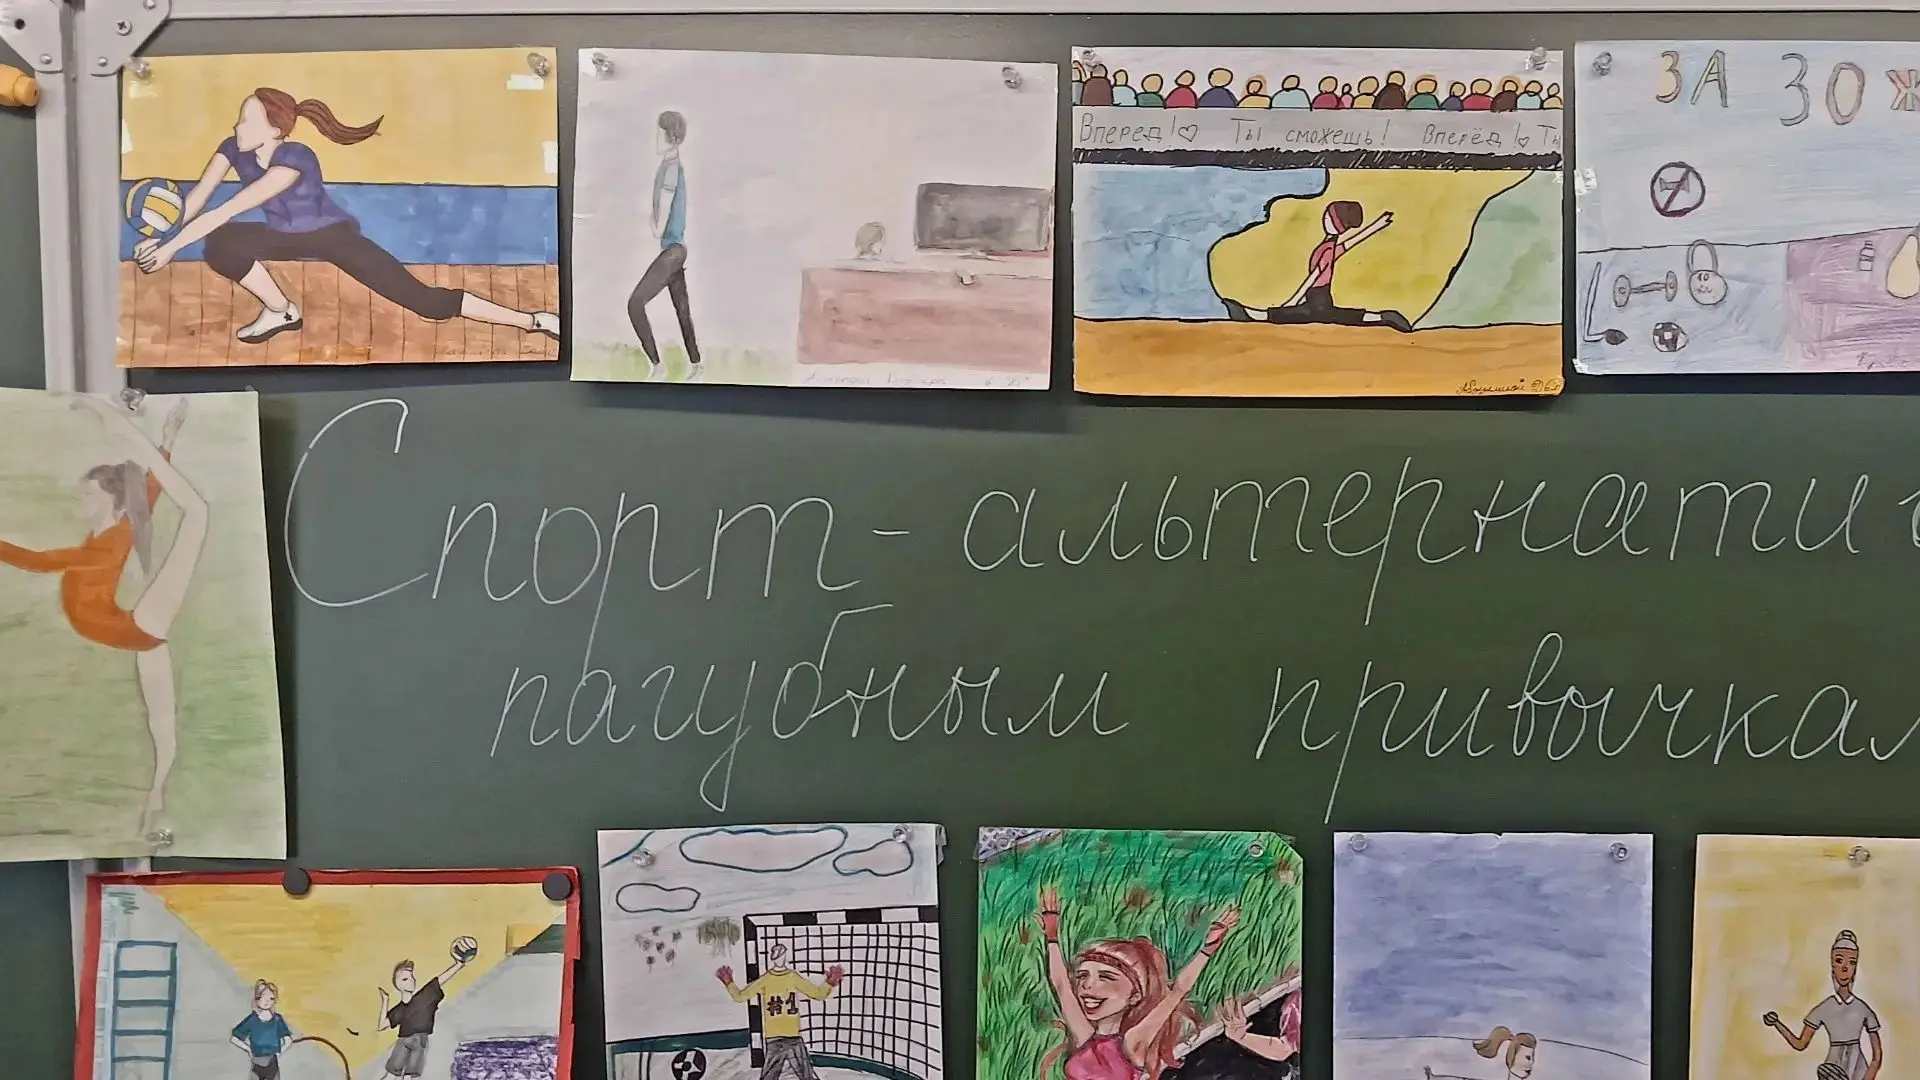 ЗА ЗОЖ
Вперед!♡ Ты сможешь! Вперёд!♡ Ты
10
#1
Спорт - альтернатив
пагубным привычкам